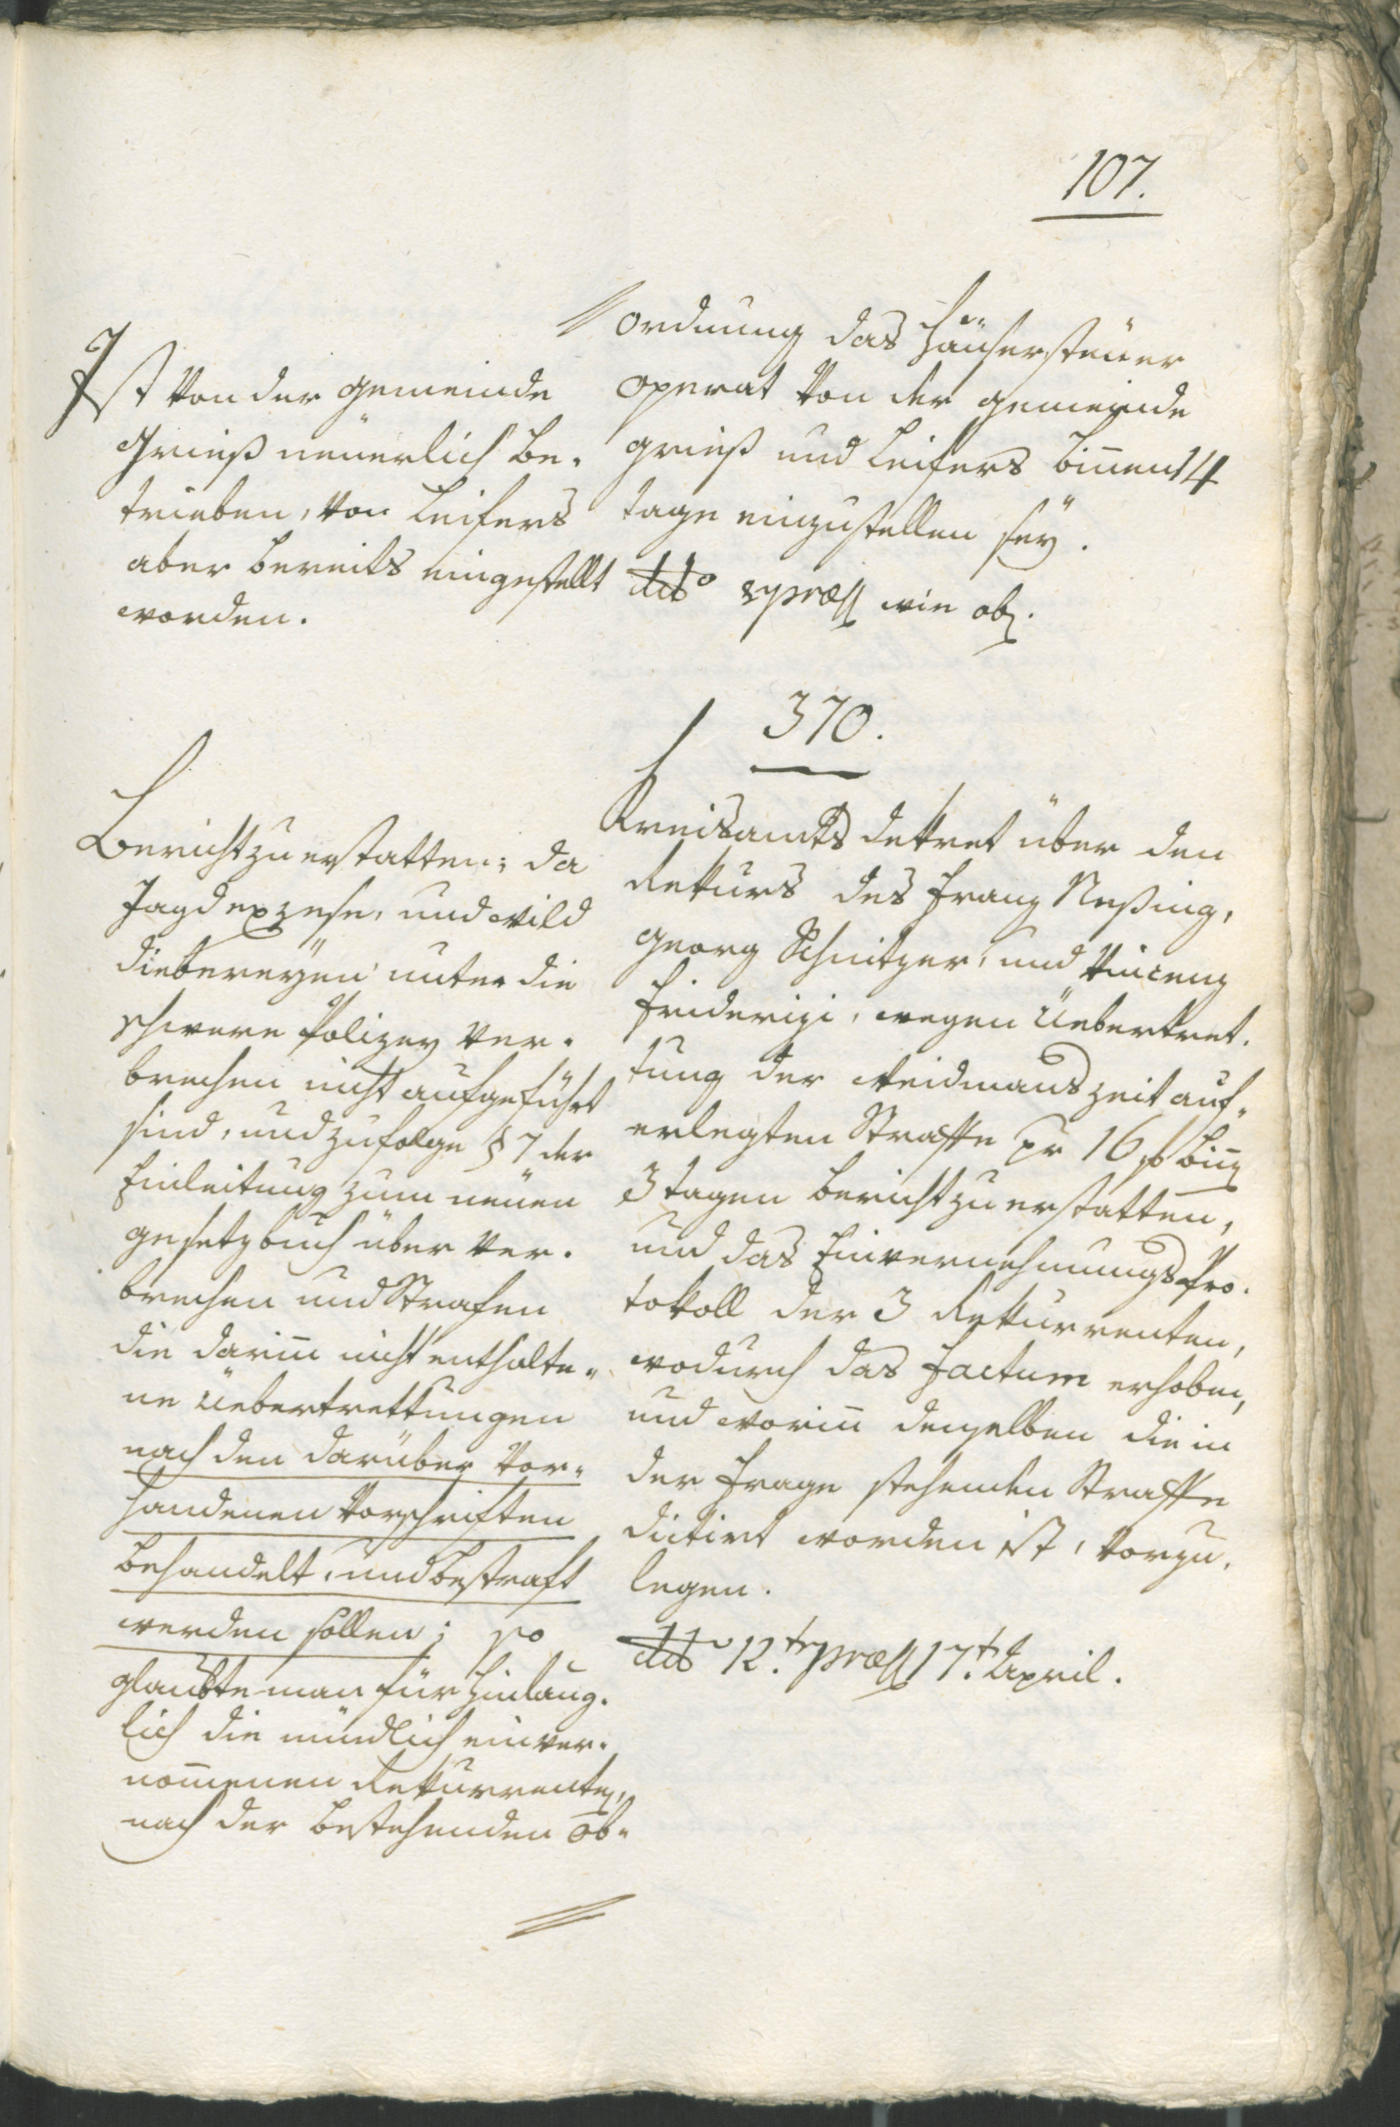 107.
Ist von der Gemeinde
Grieß neüerlich be-
trieben, von Leifers
aber bereits eingestellt
worden.
ordnung das Häusersteüer
operat von der Gemeinde
Grieß und Leifers binnen 14
Tage einzustellen seÿ.
dto & præs wie ob.
370.
Bericht zu erstatten; da
Jagdexzesse, und Wild
diebereÿen unter die
schwere Polizeÿ Ver-
brechen nicht aufgeführt
sind, und zufolge § 7 der
Einleitung zum neüen
Gesetzbuch über Ver-
brechen und Strafen
die darinn nicht enthalte-
ne Üebertrettungen
nach den darüber vor-
handenen Vorschriften
behandelt, und bestraft
werden sollen; so
glaubte man für hinläng-
lich die mündlich einver-
nommenen Rekurrenten,
nach der bestehenden Ob-
Kreisamts Dekret über den
Rekurs des Franz Neßing,
Georg Schnitzer, und Vincenz
Friderizi, wegen Üebertret-
tung der Weidmanszeit auf-
erlegten Straffe pr 16 f binn
3 Tagen Bericht zu erstatten,
und das Einvernehmungs Pro-
tokoll der 3 Rekurrenten,
wodurch das Factum erhoben,
und worinn denselben die in
der Frage stehenden Straffe
dictirt worden ist, vorzu-
legen.
dto 12.t præs 17.t April.